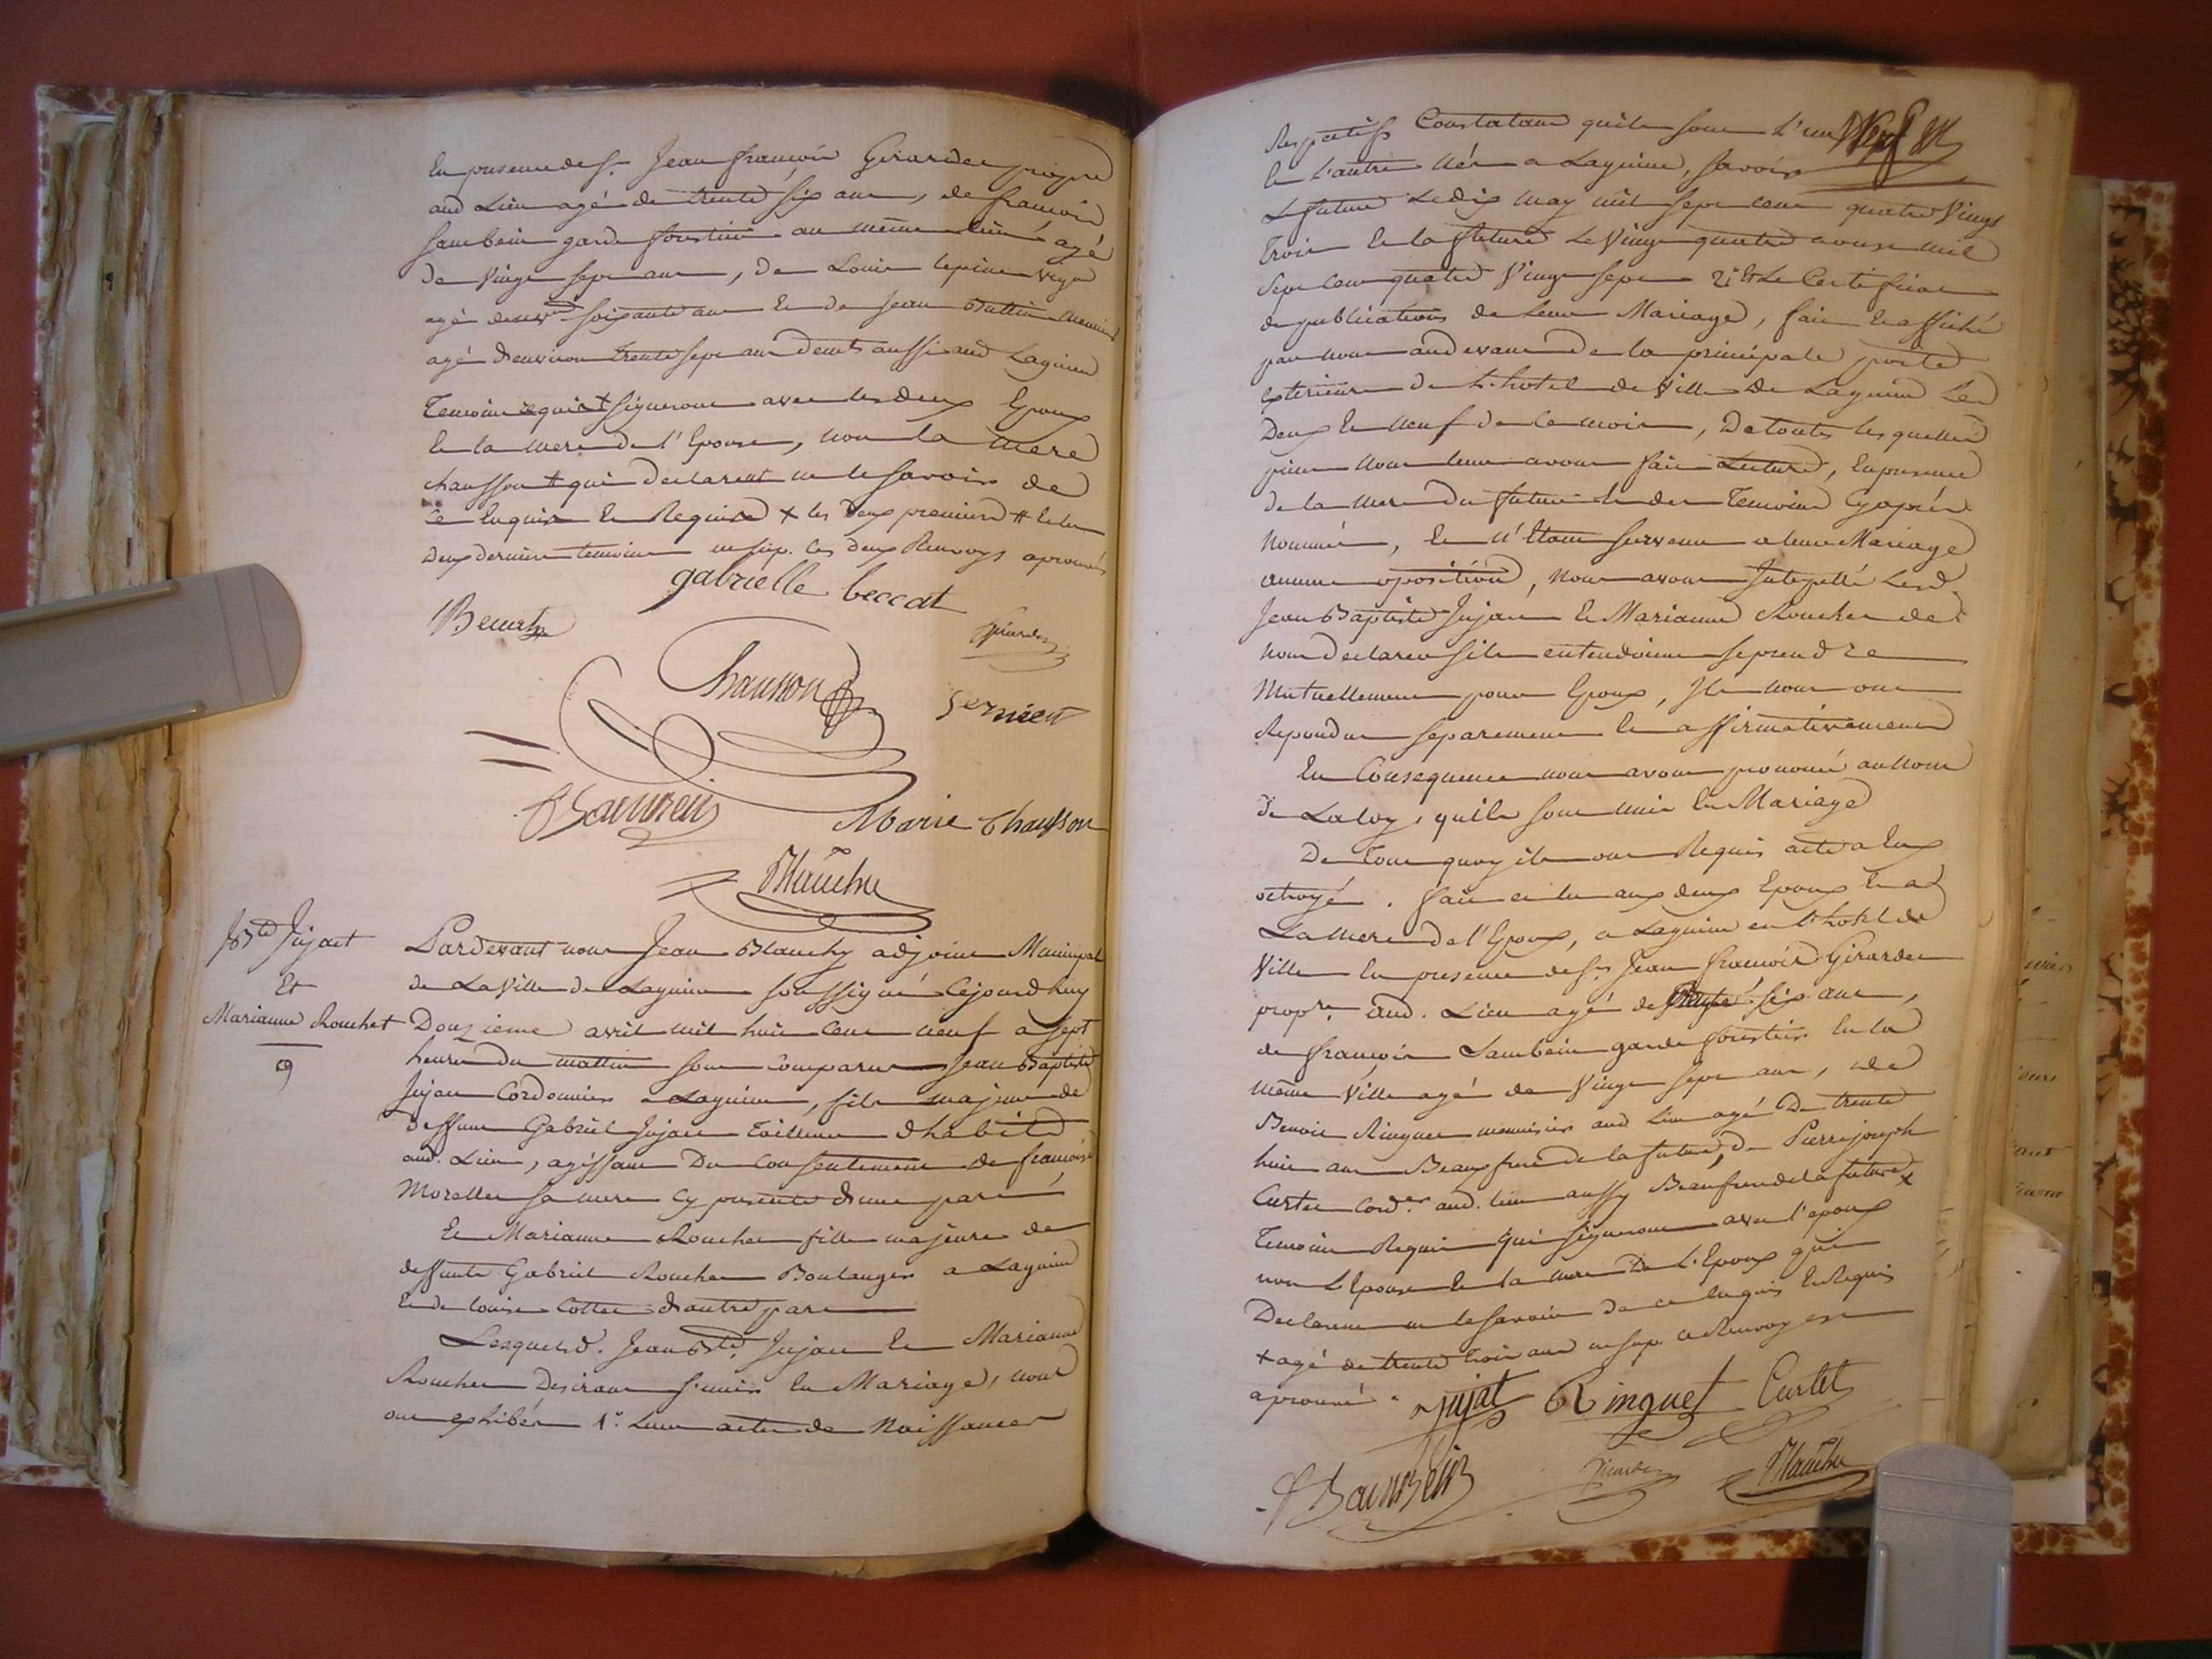 En presence de Sr. Jean françois Girardet propre
aud Lieu agé de trente six ans, de françois
Sambein garde forestier au même lieu agé
de Vingt sept ans, de Louis
agé denvon soixante ans et de Jean
agé denviron trente sept ans demts aussi aud Lagnieu
Temoins requis + signeront avec les deux Epoux
et la mere de l'Epouse, non la mere
chausson # qui declarent ne le savoir de
ce enquise et Requise + les deux premiers # et les
deux derniers temoins ces deux Renvoys aprouvés
gabrielle beccat
Chausson
Marie Chausson
Blanchy
J Bte Jujat
Et
Marianne Rouchet
9
Pardevant nous Jean Blanchy adjoint Municipal
de La Ville de Lagnieu soussigné Cejourdhuy
Douzieme avril mil huit cent neuf a sept
heures du mattin sont comparus Jean Baptiste
Jujat Cordonnier a Lagnieu, fils majeur de
deffunt Gabriel Jujat Tailleur dhabits
aud. Lieu, agissant Du Consentement de françoise
Morellet sa mere cy presente dune part
Et Marianne Rouchet fille majeure de
deffunts Gabriel Rouchet Boulanger a Lagnieu
et de louise Cottet dautre part
Lesquels d. Jean Bte. Jujat et Marianne
Rouchet Desirant s'unir En Mariage, nous
ont exhibés 1°. Leurs actes de Naissances
Respectifs Constatant quils sont L'un
et L'autre Nés a Lagnieu, savoir
Le futur Le dix may mil sept cent quatre Vingt
Trois et la future Le Vingt quatre aoust mil
sept cent quatre Vingt sept 2° Et Le Certificat
de publications de Leur Mariage, fait et affiché
par nous audevant de la principale porte
exterieure de L'hotel de Ville de Lagnieu Les
Deux et neuf de ce mois, De toutes lesquelles
pieces nous leur avons fait Lecture, En presence
de la mere du futur et des Temoins Cy après
Nommés, et N'Etant survenu a leur Mariage
aucune oposition, nous avons Interpellé Lesd.
Jean Baptiste Jujat et Marianne Rouchet de
nous declarer sils entendoient se prendre
Mutuellement pour Epoux, Ils nous ont
Repondu separement et affirmativement
En Consequence nous avons prononcé au nom
de La loy, quils sont unis En Mariage
De Tout quoy ils ont Requis acte a Eux
octroyé. fait et lu aux deux Epoux et a
La mere de l'Epoux, a Lagnieu en L'hotel de
Ville En presence de Sr. Jean françois Girardet
propre. aud. Lieu agé de trente six ans,
de françois Sambein garde forestier En la
même Ville agé de Vingt sept ans, de
Benoit Ringuet menuisier aud Lieu agé De trente
huit ans Beaufrere de la future, De Pierre joseph
Curtet Cord.er aud. lieu aussy Beaufrere de la future +
Temoins Requis qui signeront avec l'epoux
non L'Epouse et la mere De L'Epoux qui
Declarent ne le savoir de ce Enquis Et Requis
+ agé de trente trois ans ce Renvoy est
aprouvé.
Jujat Ringuet Curtet
Girardet
Blanchy